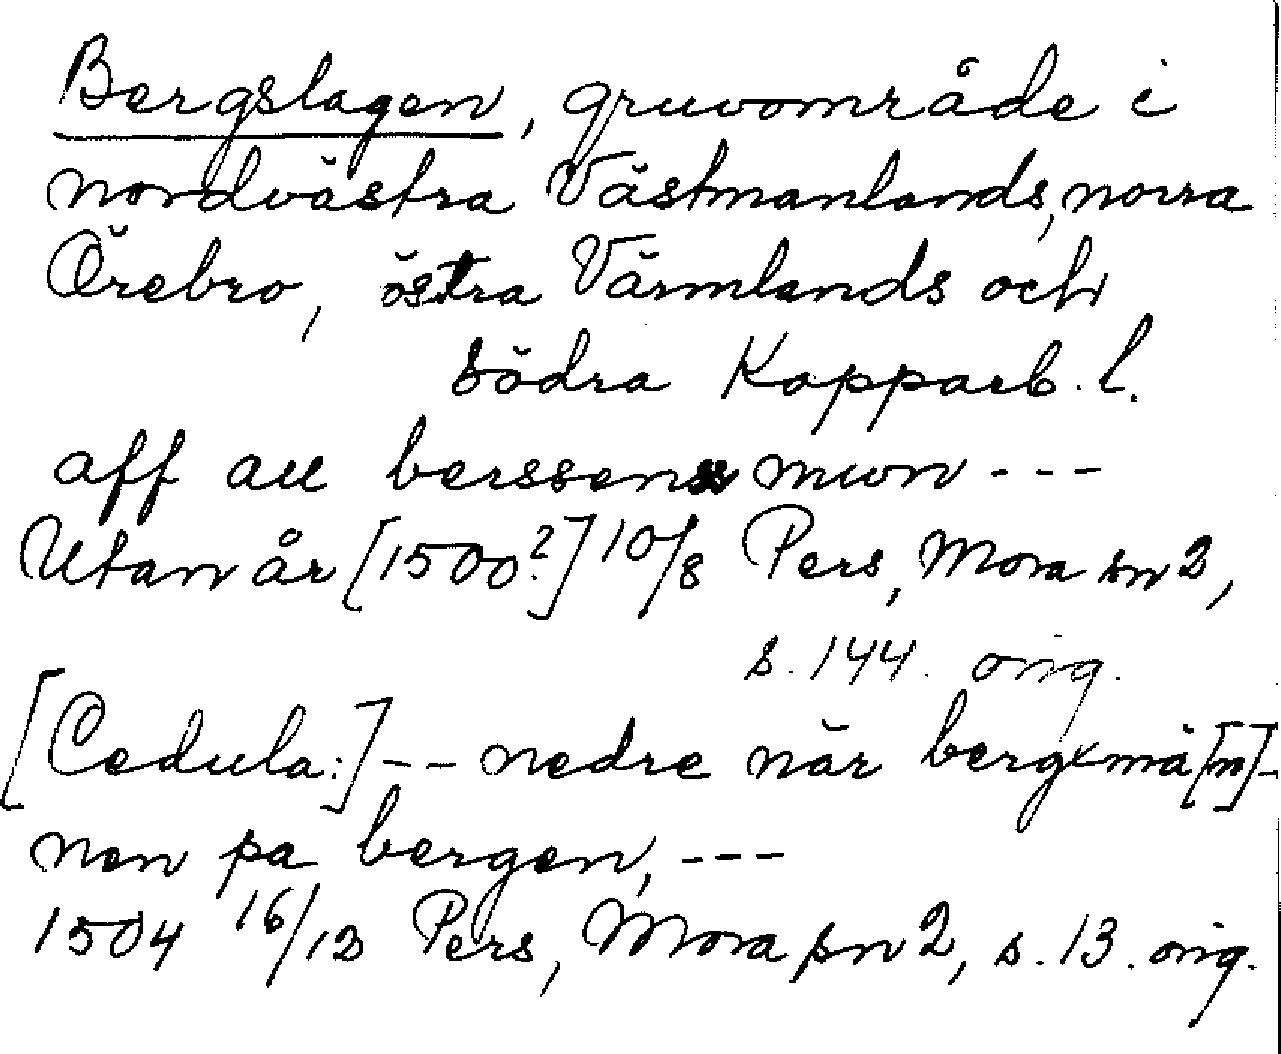 Bergslagen, gruvområde i
nordvästra Västmanlands, norra
Örebro, östra Värmlands och
södra Kopparb. l.
aff all berssens mwn ---
Utan år [1500?] 10/8 Pers, Mora sn 2,
s. 144. orig.
[Cedula:] -- nedre när bergxmä[n]-
nen pa bergen, ---
1504 16/12 Pers, Mora sn 2, s. 13. orig.